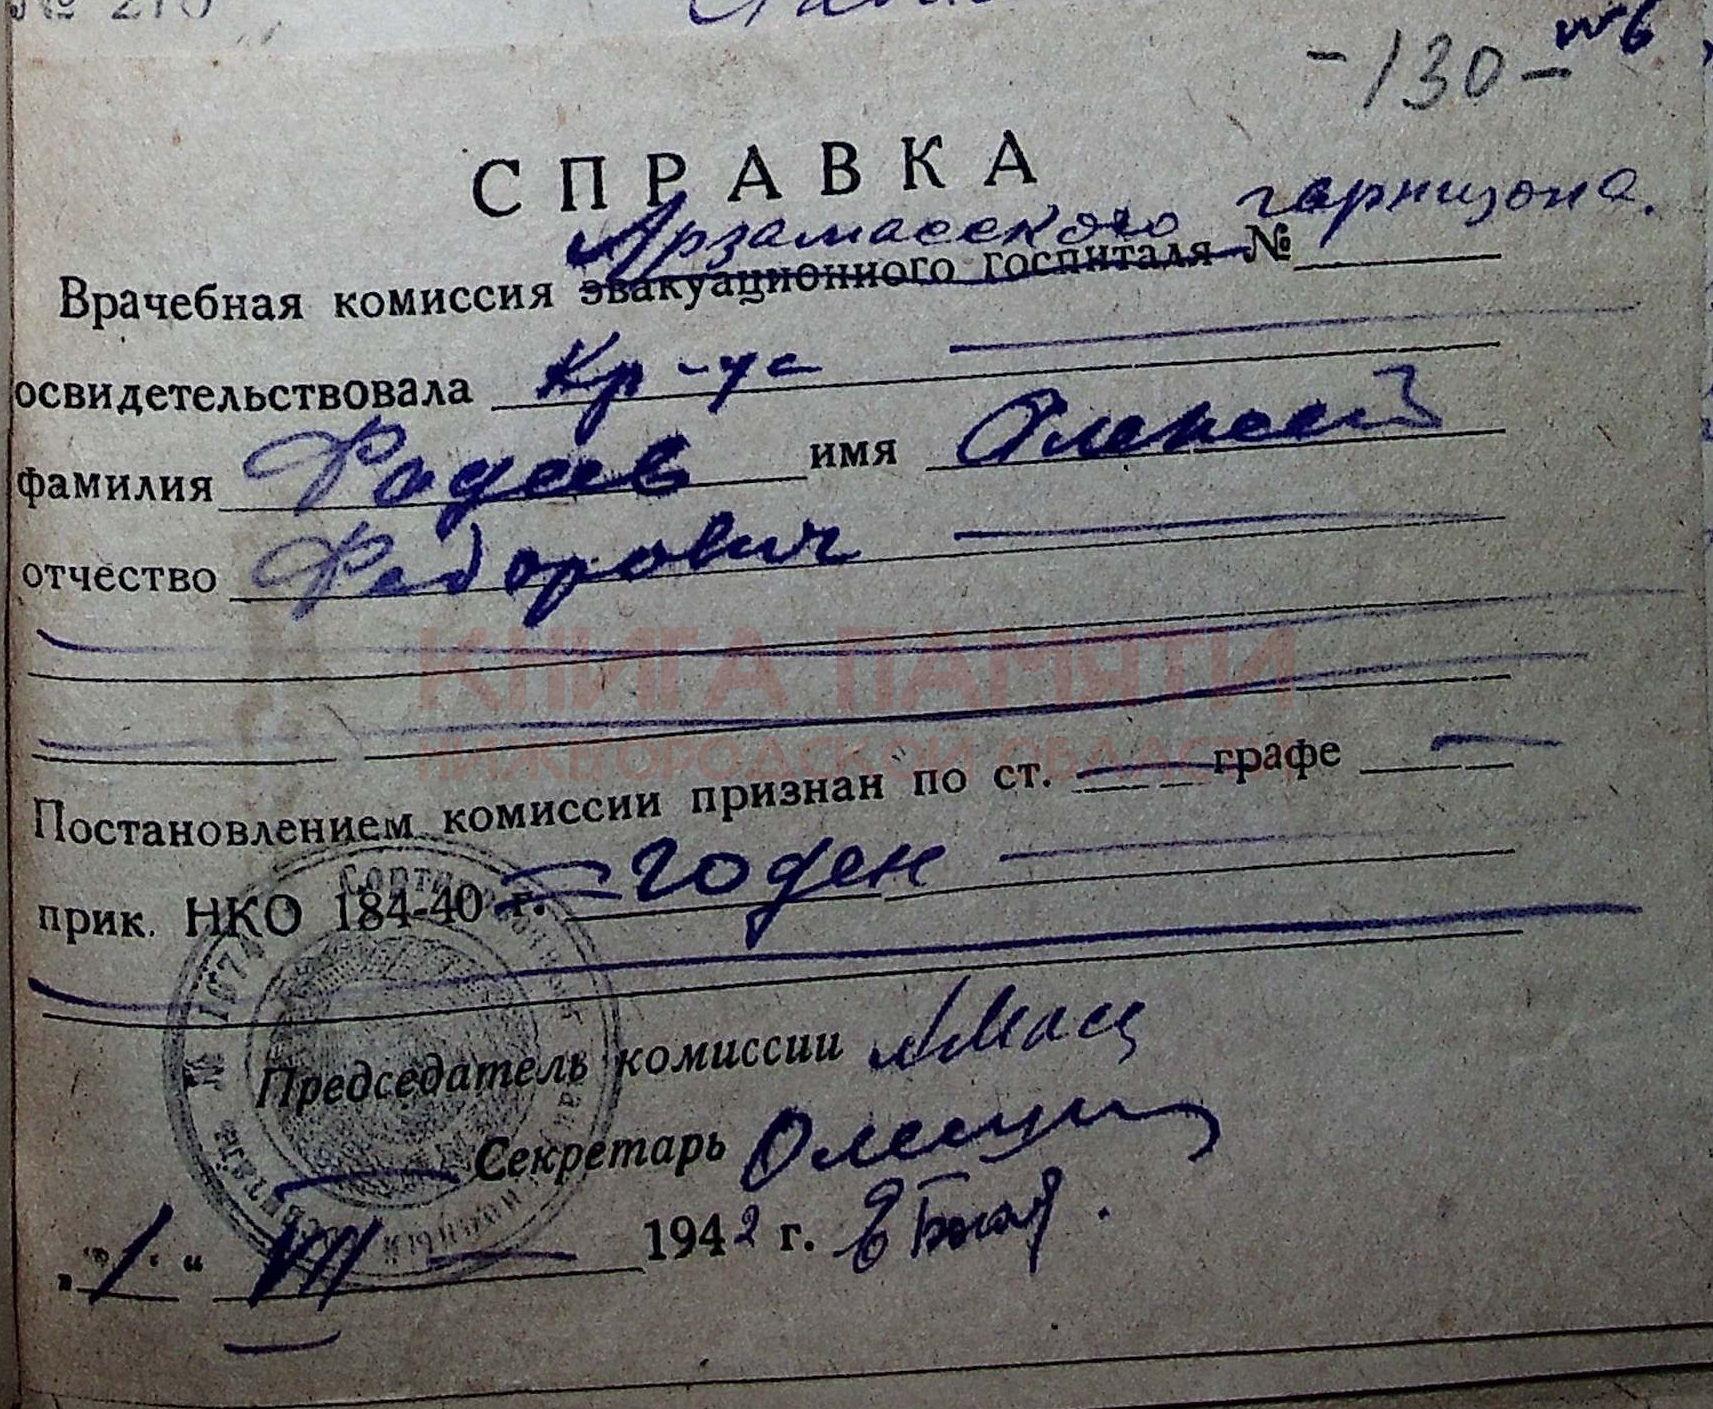 № 270
-130-
СПРАВКА
Арзамасского гарнизона.
Врачебная комиссия эвакуационного госпиталя №
освидетельствовала Кр-ус
фамилия Фадеев имя Алексей
отчество Федорович
КНИГА ПАМЯТИ
НИЖЕГОРОДСКОЙ ОБЛАСТИ
Постановлением комиссии признан по ст. графе
прик. НКО 184-40 г. годен
Председатель комиссии
Секретарь
„1“ VIII 1942 г.
№ 1074